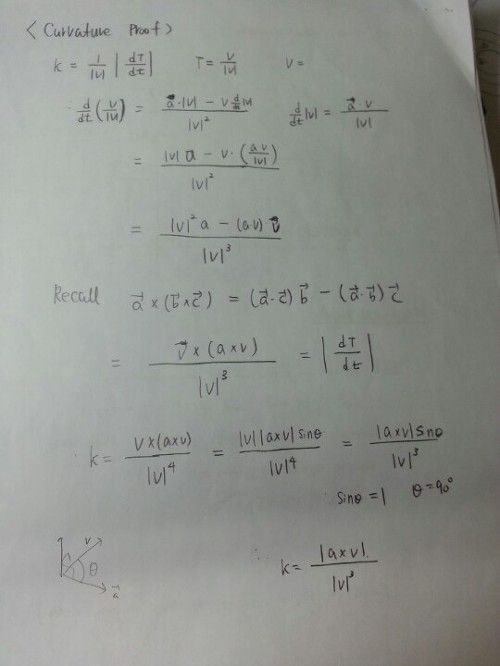 < Curvature Proof >
k = 1/|v| |dT/dt|   T = v/|v|   v =
∴ d/dt (v/|v|) = (a⃗·|v| - v d/dt|v|)/|v|²   d/dt|v| = (a⃗·v)/|v|
= (|v| a - v·(av/|v|))/|v|²
= (|v|² a - (a·v) v⃗)/|v|³
Recall a⃗ × (b⃗ × c⃗) = (a⃗·c⃗) b⃗ - (a⃗·b⃗) c⃗
= (v⃗ × (a × v))/|v|³ = |dT/dt|
∴ k = (v × (a × v))/|v|⁴ = (|v| |a×v| sinθ)/|v|⁴ = (|a×v| sinθ)/|v|³
∴ sinθ = 1   θ = 90°
v
θ
a⃗
∴ k = |a × v|/|v|³